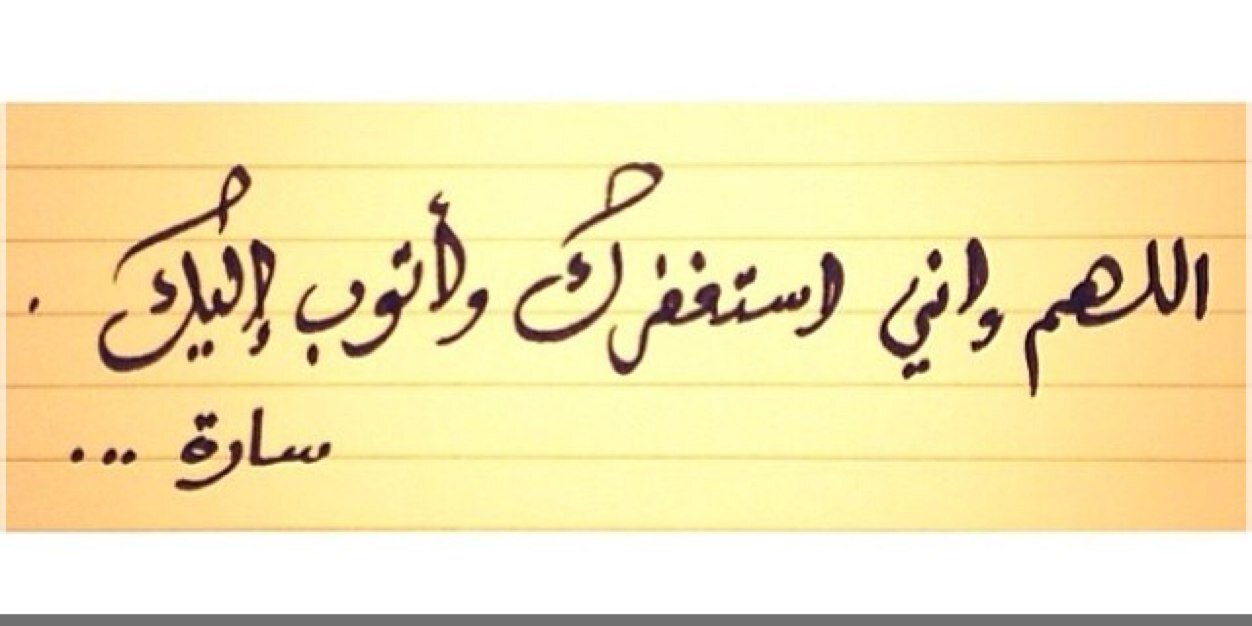 اللهم واني استغفرك وأتوب إليك .
سارة ...